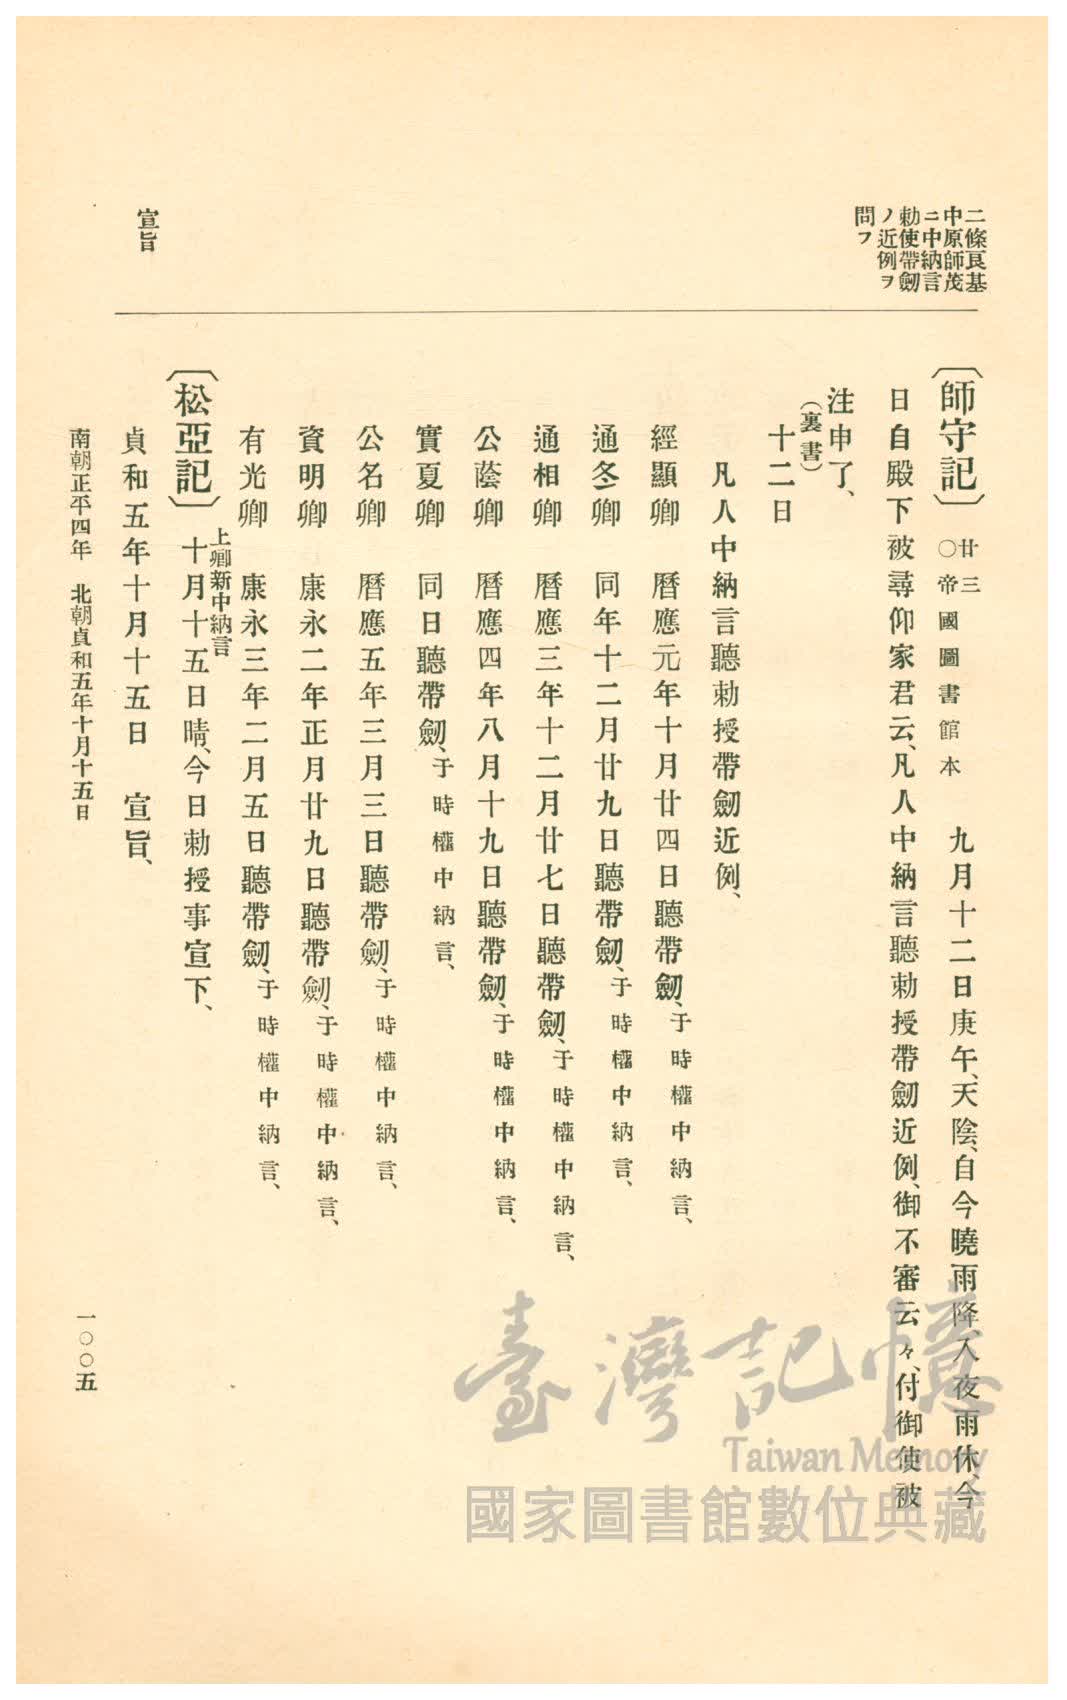 二條良基
中原師茂
ニ中納言
勅使帶劒
ノ近例ヲ
問フ
〔師守記〕 廿三 ○帝國圖書館本 九月十二日庚午、天陰、自今曉雨降、入夜雨休、今
日自殿下被尋仰家君云、凡人中納言聽勅授帶劒近例、御不審云々、付御使被
注申了、
(裏書)
十二日
凡人中納言聽勅授帶劒近例、
經顯卿 曆應元年十月廿四日聽帶劒、于時權中納言、
通冬卿 同年十二月廿九日聽帶劒、于時權中納言、
通相卿 曆應三年十二月廿七日聽帶劒、于時權中納言、
公蔭卿 曆應四年八月十九日聽帶劒、于時權中納言、
實夏卿 同日聽帶劒、于時權中納言、
公名卿 曆應五年三月三日聽帶劒、于時權中納言、
資明卿 康永二年正月廿九日聽帶劒、于時權中納言、
有光卿 康永三年二月五日聽帶劒、于時權中納言、
宣旨
上卿新中納言
〔松亞記〕 十月十五日晴、今日勅授事宣下、
貞和五年十月十五日 宣旨、
南朝正平四年 北朝貞和五年十月十五日
一〇〇五
臺灣記憶
Taiwan Memory
國家圖書館數位典藏